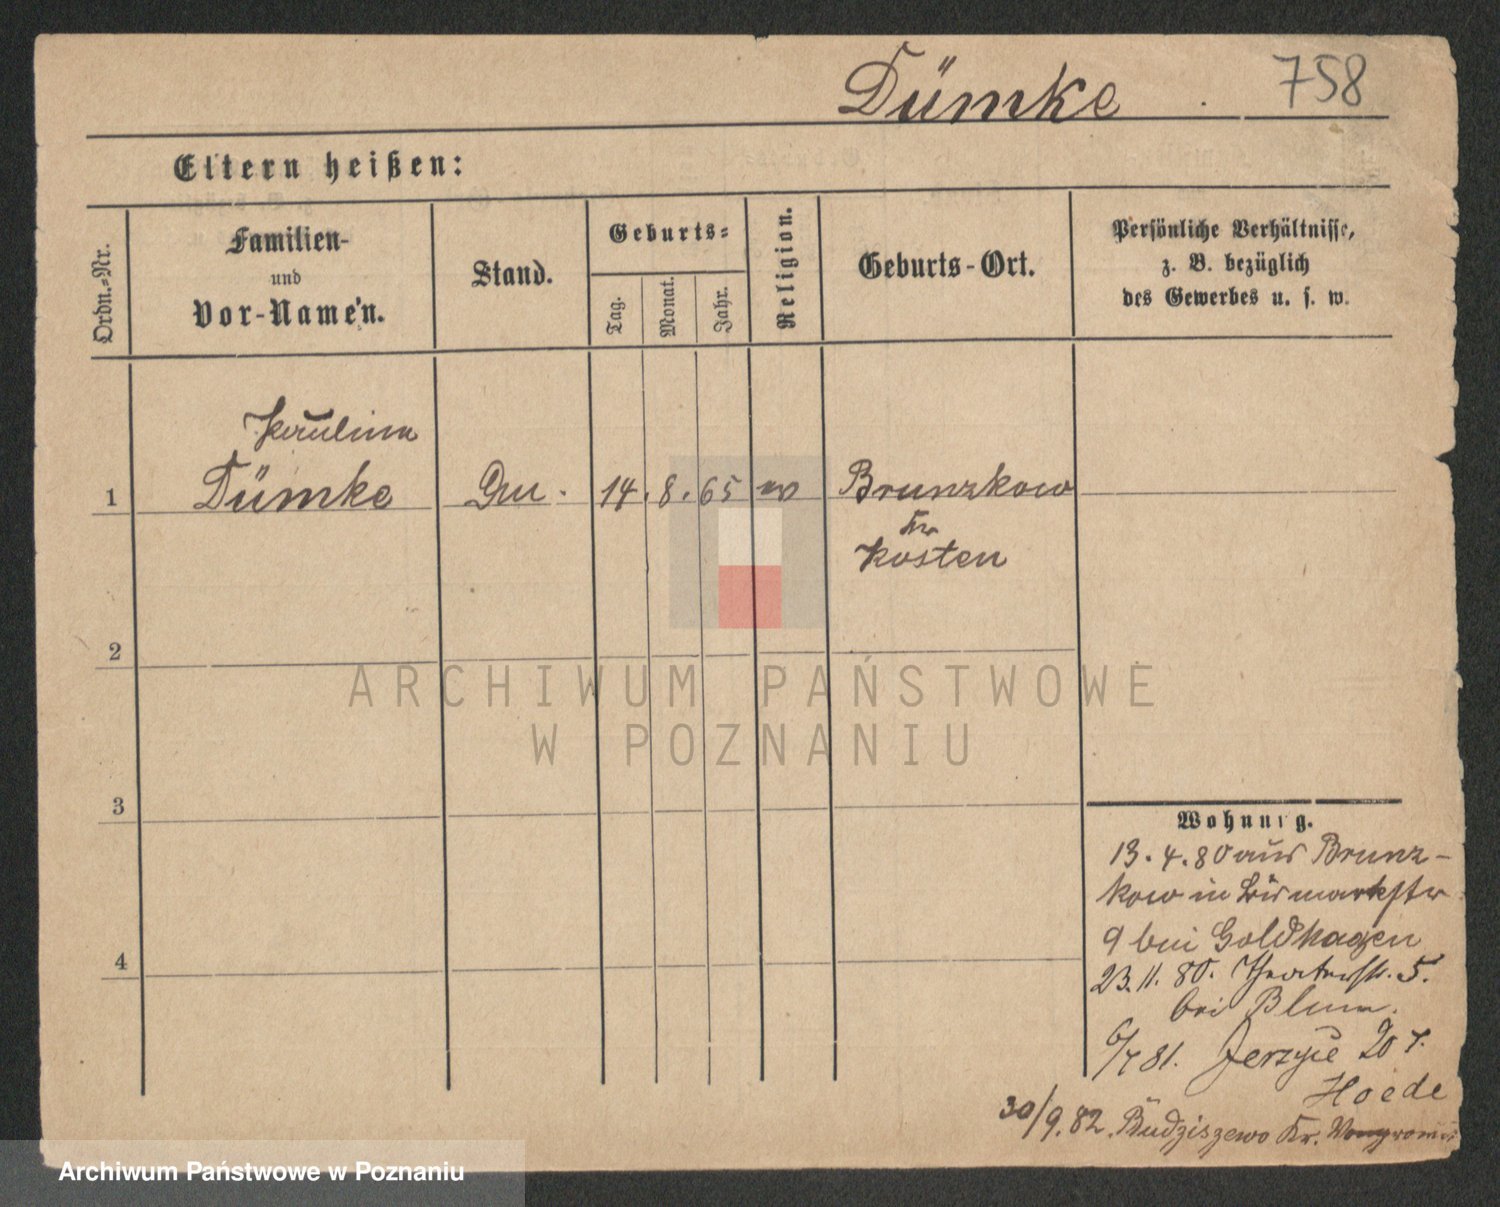 Dümke 758
Eltern heißen:
Ordn.-Nr.
Familien-
und
Vor-Namen.
Stand.
Geburts-
Tag.
Monat.
Jahr.
Religion.
Geburts-Ort.
Persönliche Verhältnisse,
z. B. bezüglich
des Gewerbes u. s. w.
Paulina
1 Dümke 14. 8. 65 Brunzkow
Kr
Kosten
2
3
4
Wohnung.
13.4.80 aus Brunz-
kow in Bismarkstr
9 bei Goldhagen
23.11.80. Theaterstr. 5.
bei Blum.
6/7 81. Jerzyce
Hoede
30/9.82. Budziszewo Kr.
ARCHIWUM PAŃSTWOWE
W POZNANIU
Archiwum Państwowe w Poznaniu